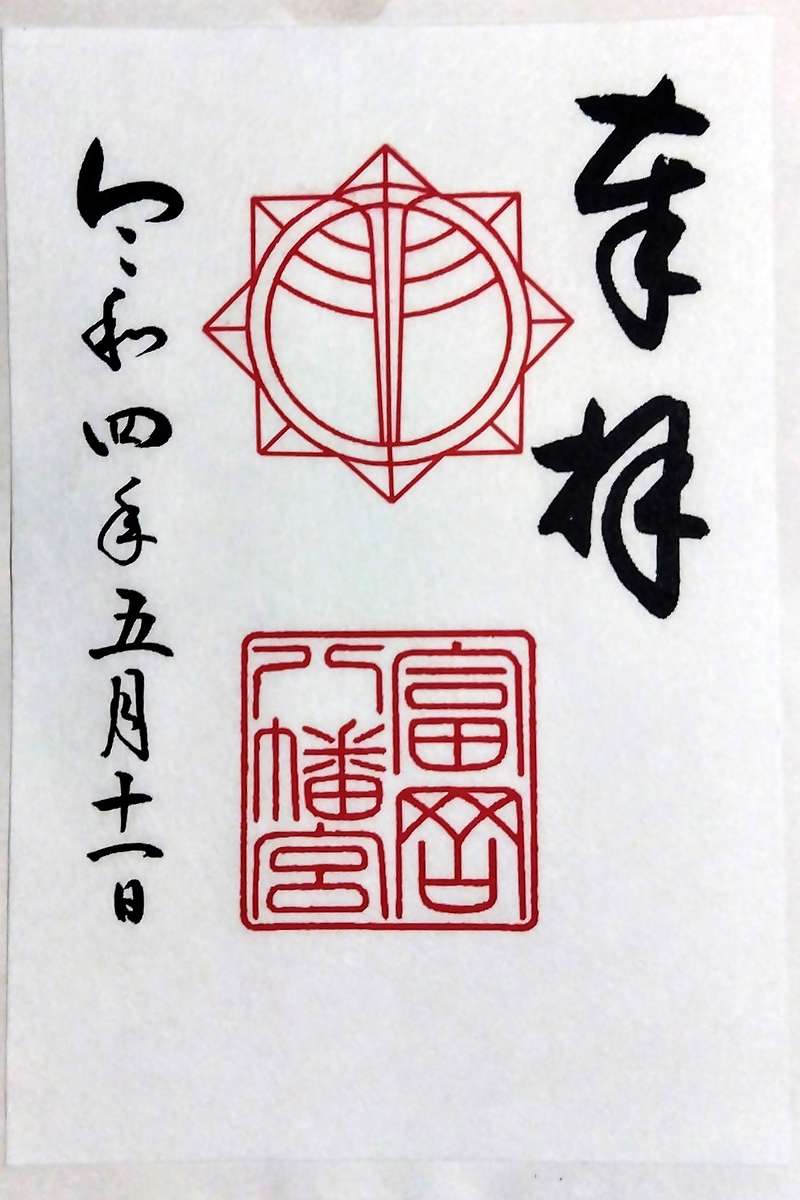 奉拝
富岡
八幡宮
令和四年五月十一日